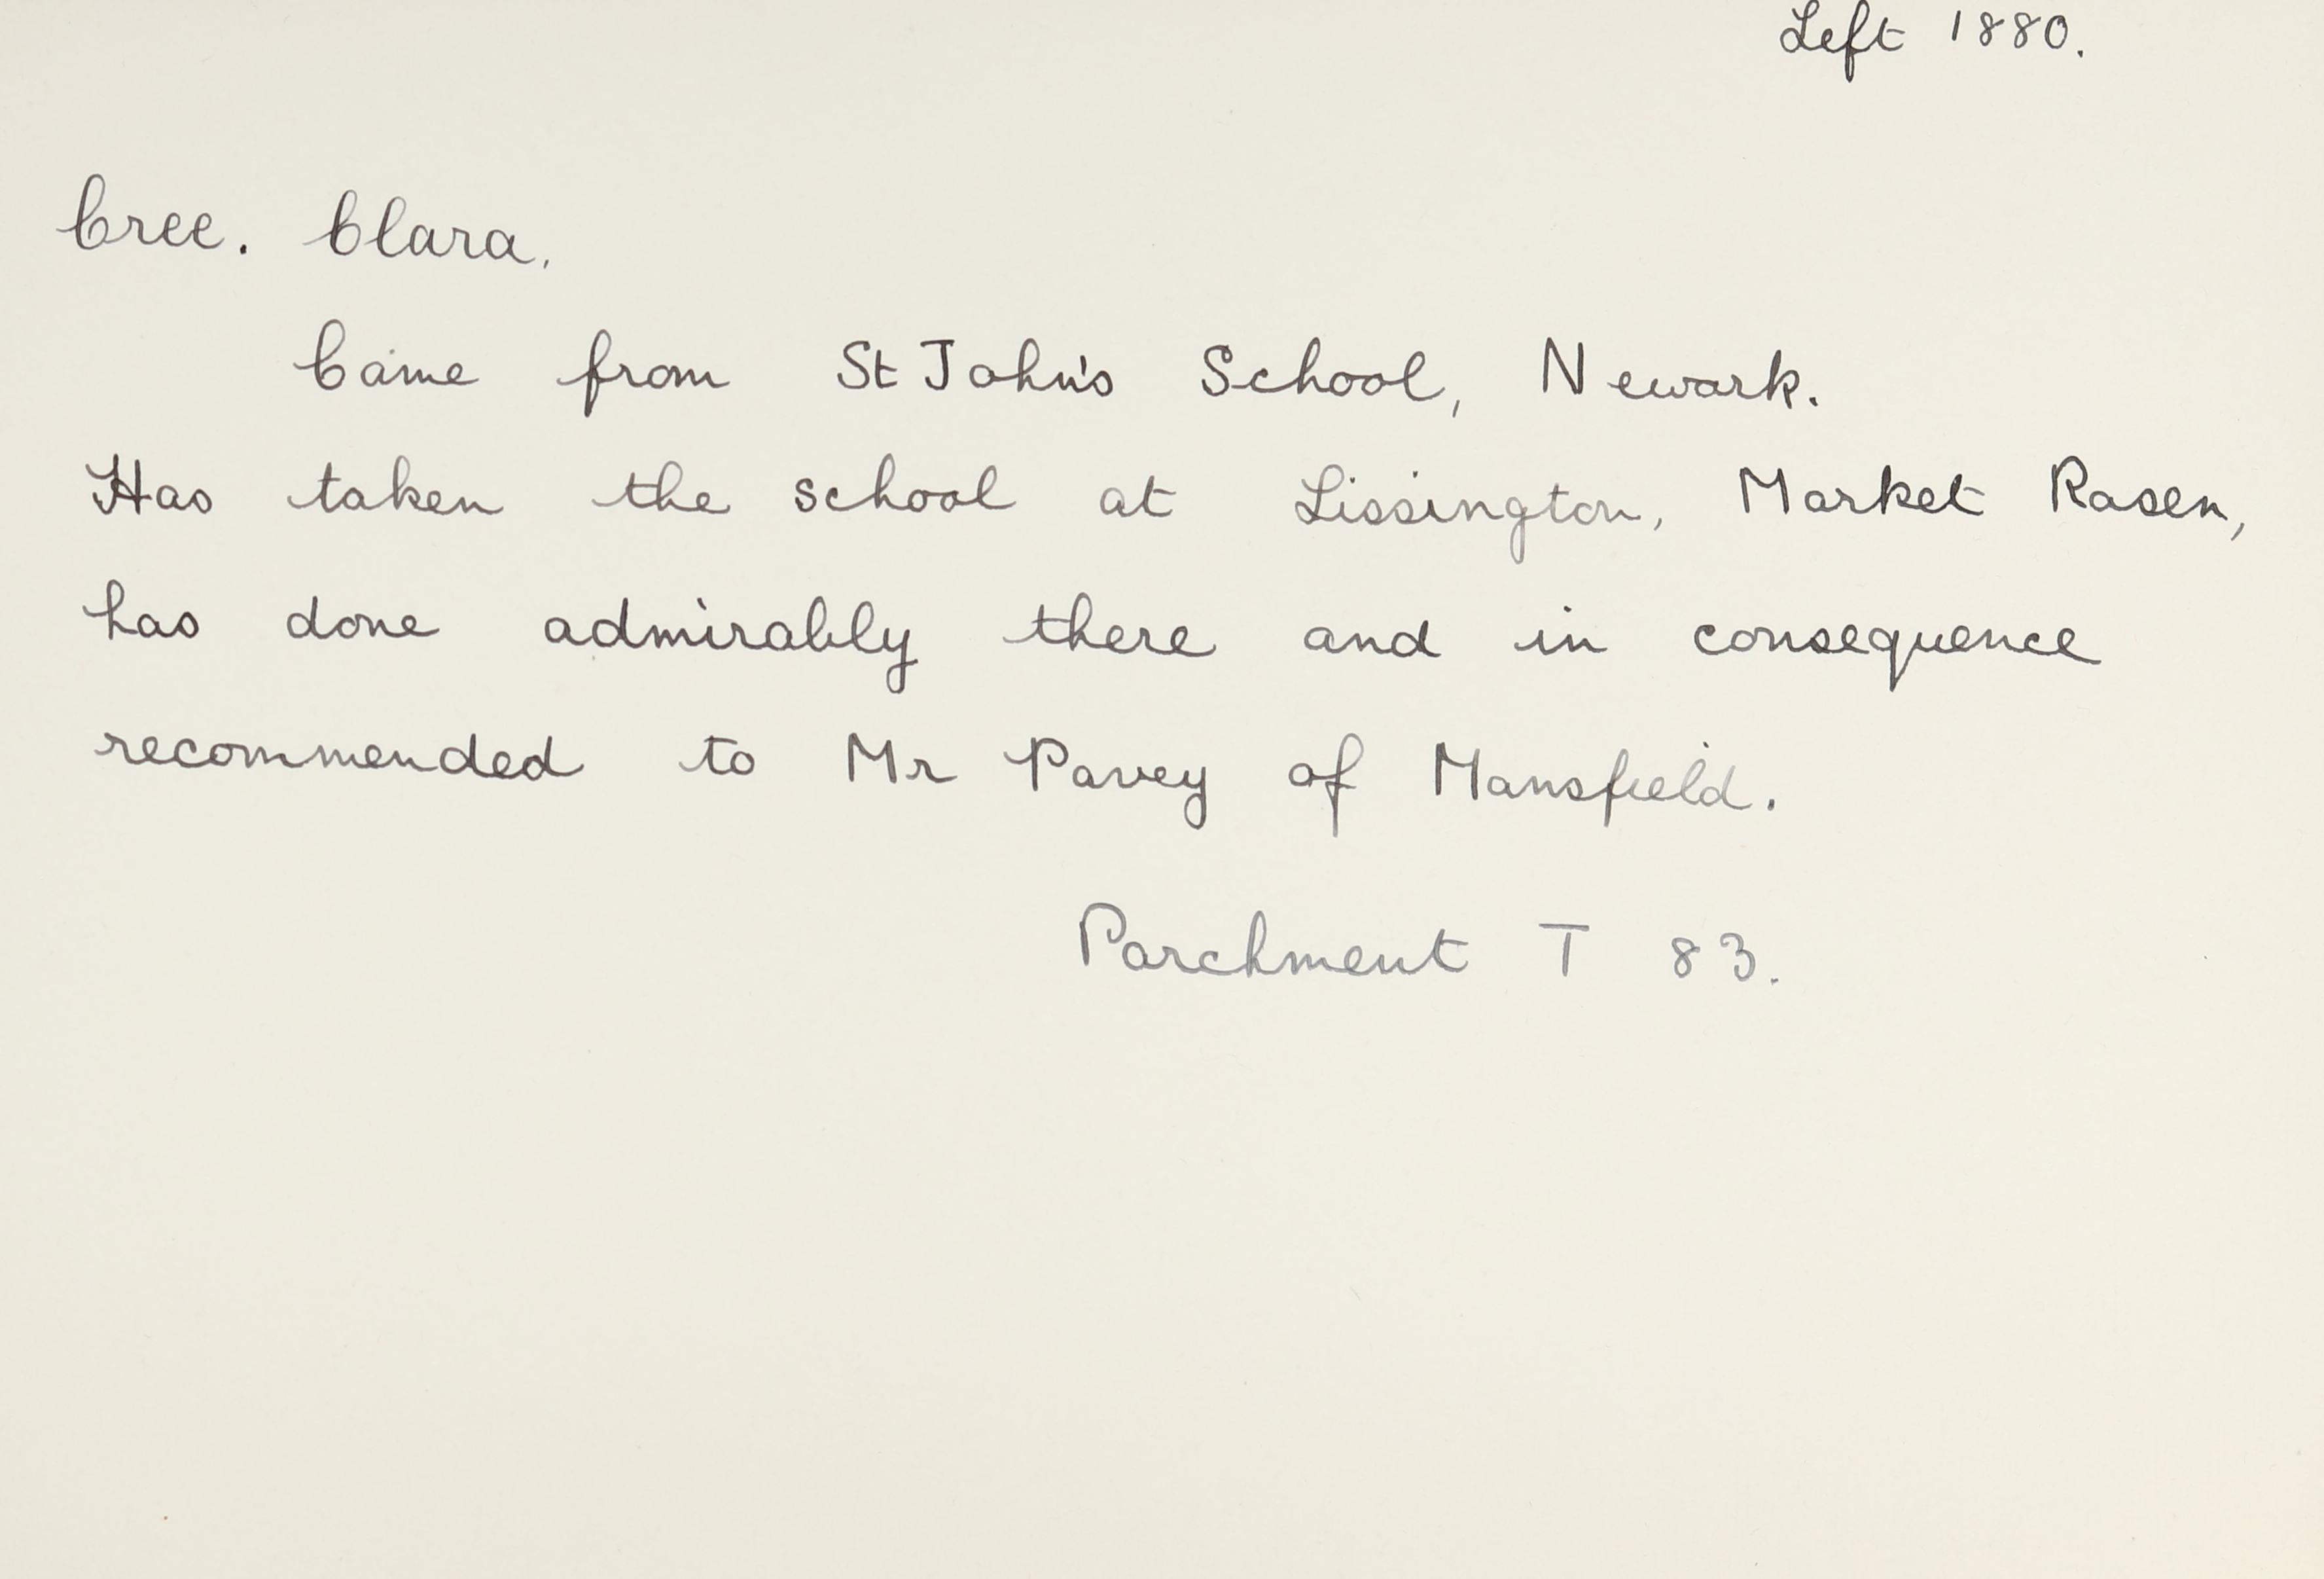 Left 1880.
Cree. Clara.
Came from St John's School, Newark.
Has taken the school at Lissington, Market Rasen,
has done admirably there and in consequence
recommended to Mr Pavey of Mansfield.
Parchment T 83.